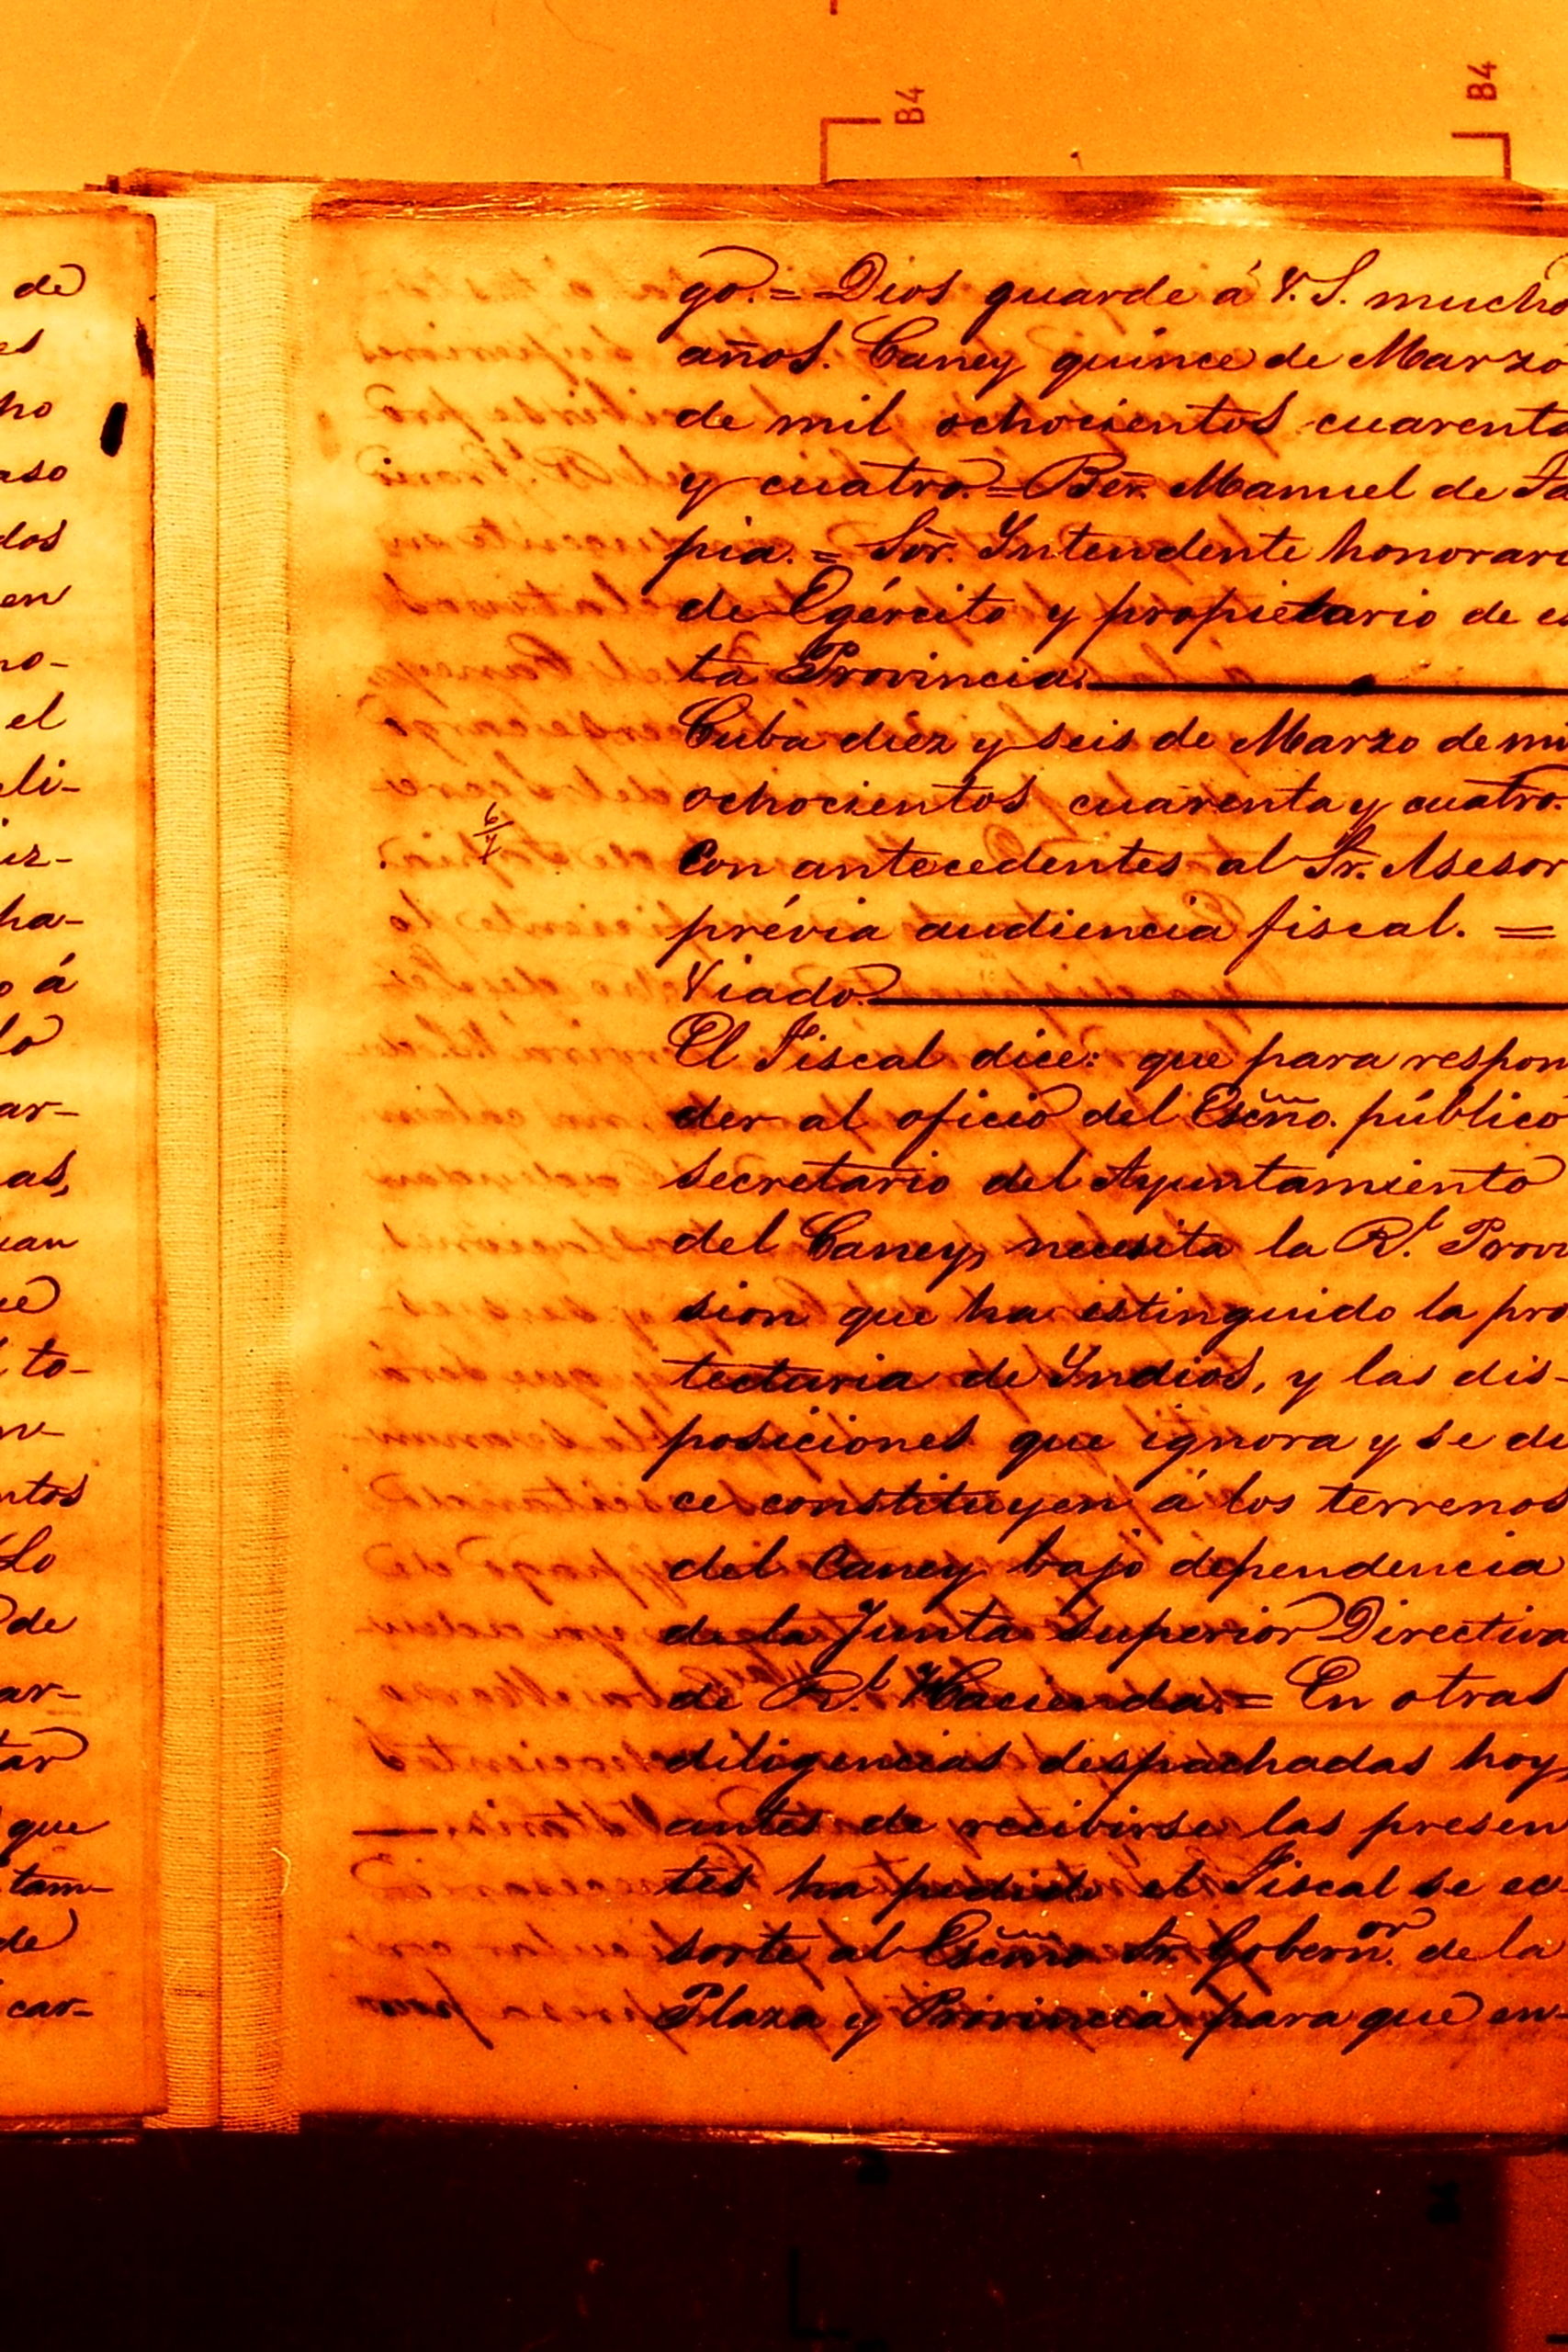 B4
B4
de
es
ho
aso
dos
en
no-
el
li-
iz-
ha-
o á
lo
ar-
as,
ian
ue
to-
n-
ntos
Lo
de
ar-
tar
que
tam-
de
car-
go. = Dios guarde á V. S. mucho
años. Caney quince de Marzo
de mil ochocientos cuarenta
y cuatro. = Ber. Manuel de Ta
pia. = Sor. Yntendente honorari
de Egército y propietario de es
ta Provincia.
Cuba diez y seis de Marzo de mi
ochocientos cuarenta y cuatro
6/7
Con antecedentes al Sr. Asesor
prévia audiencia fiscal. =
Viado
El Fiscal dice: que para respon
der al oficio del Escño. público
secretario del Ayuntamiento
del Caney, necesita la Rl. Provi
sion que ha estinguido la pro
tecturia de Yndios, y las dis-
posiciones que ignora y se di
ce constituyen á los terrenos
del Caney bajo dependencia
de la Junta Superior Directiva
de Rl. Hacienda. = En otras
diligencias despachadas hoy
antes de recibirse las presen
tes ha pedido el Fiscal se ec
sorte al Escmo Sr. Gobernor. de la
Plaza y Provincia para que en-